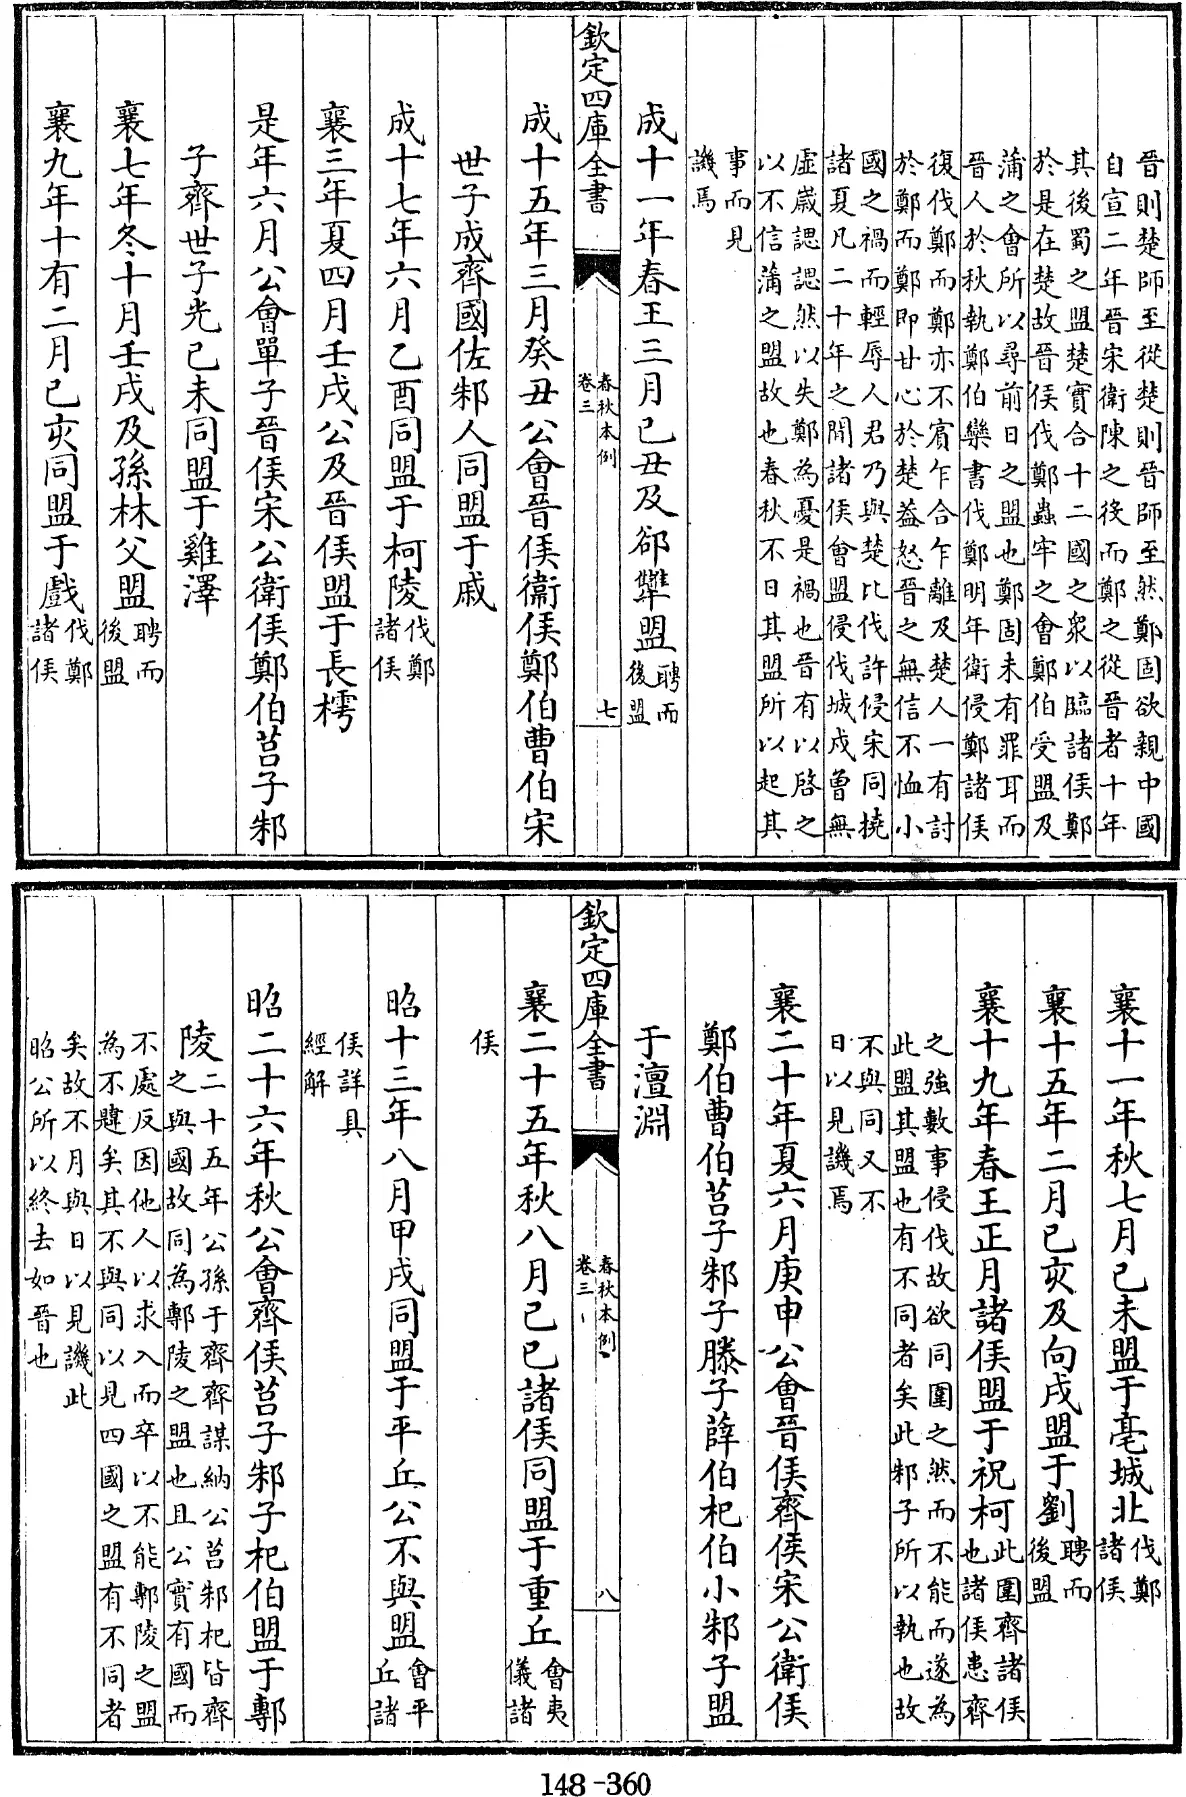 晉則楚師至從楚則晉師至然鄭固欲親中國
自宣二年晉宋衛陳之後而鄭之從晉者十年
其後蜀之盟楚實合十二國之衆以臨諸侯鄭
於是在楚故晉侯伐鄭蟲牢之會鄭伯受盟及
蒲之會所以尋前日之盟也鄭固未有罪耳而
晉人於秋執鄭伯欒書伐鄭明年衛侵鄭諸侯
復伐鄭而鄭亦不賔乍合乍離及楚人一有討
於鄭而鄭即甘心於楚葢怒晉之無信不恤小
國之禍而輕辱人君乃與楚比伐許侵宋同撓
諸夏凡二十年之間諸侯會盟侵伐城戍曾無
虛歲諰諰然以失鄭為憂是禍也晉有以啓之
以不信蒲之盟故也春秋不日其盟所以起其
事而見
譏焉
成十一年春王三月己丑及郤犫盟聘而後盟
欽定四庫全書
春秋本例
卷三
七
成十五年三月癸丑公會晉侯衞侯鄭伯曹伯宋
世子成齊國佐邾人同盟于戚
成十七年六月乙酉同盟于柯陵伐鄭諸侯
襄三年夏四月壬戌公及晉侯盟于長樗
是年六月公會單子晉侯宋公衛侯鄭伯莒子邾
子齊世子光已未同盟于雞澤
襄七年冬十月壬戌及孫林父盟聘而後盟
襄九年十有二月已亥同盟于戲伐鄭諸侯
襄十一年秋七月已未盟于亳城北伐鄭諸侯
襄十五年二月已亥及向戌盟于劉聘而後盟
襄十九年春王正月諸侯盟于祝柯此圍齊諸侯也諸侯患齊
之強數事侵伐故欲同圍之然而不能而遂為
此盟其盟也有不同者矣此邾子所以執也故
不與同又不
日以見譏焉
襄二十年夏六月庚申公會晉侯齊侯宋公衛侯
鄭伯曹伯莒子邾子滕子薛伯杞伯小邾子盟
于澶淵
欽定四庫全書
春秋本例
卷三
八
襄二十五年秋八月己巳諸侯同盟于重丘會夷儀諸
侯
昭十三年八月甲戌同盟于平丘公不與盟會平丘諸
侯詳具
經解
昭二十六年秋公會齊侯莒子邾子杞伯盟于鄟
陵二十五年公孫于齊齊謀納公莒邾杞皆齊
之與國故同為鄟陵之盟也且公實有國而
不處反因他人以求入而卒以不能鄟陵之盟
為不韙矣其不與同以見四國之盟有不同者
矣故不月與日以見譏此
昭公所以終去如晉也
148-360